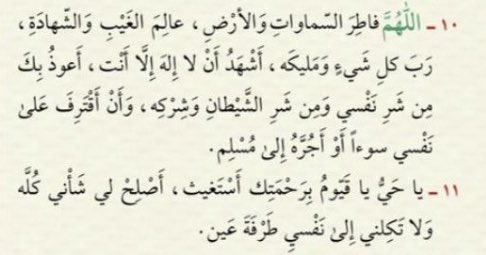 ١٠ - اللَّهُمَّ فاطِرَ السَّماواتِ وَالأَرْضِ ، عالِمَ الغَيْبِ وَالشَّهادَةِ ،
رَبَ كلِ شَيءٍ وَمَليكَه ، أَشْهَدُ أَنْ لا إِلهَ إِلَّا أَنْت ، أَعوذُ بِكَ
مِن شَرِ نَفْسي وَمِن شَرِ الشَّيْطانِ وَشِرْكِه ، وَأَنْ أَقْتَرِفَ عَلىٰ
نَفْسي سوءاً أَوْ أَجُرَّهُ إِلىٰ مُسْلِم .
١١ - يا حَيُّ يا قَيّومُ بِرَحْمَتِك أَسْتَغيث ، أَصْلِحْ لي شَأْني كُلَّه
وَلا تَكِلني إِلىٰ نَفْسي طَرْفَةَ عَين .